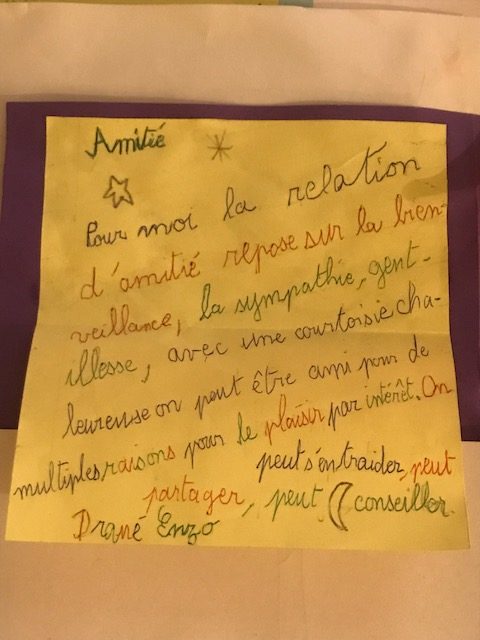 Amitié
Pour moi la relation
d'amitié repose sur la bien-
veillance, la sympathie, gent-
illesse, avec une courtoisie cha-
leureuse on peut être ami pour de
multiples raisons pour le plaisir par intérêt. On
peut s'entraider, peut
partager, peut conseiller.
Enzo